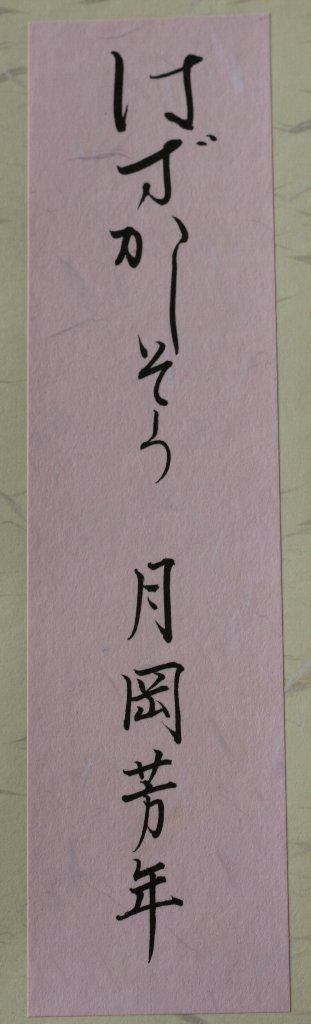 はずかしそう 月岡芳年